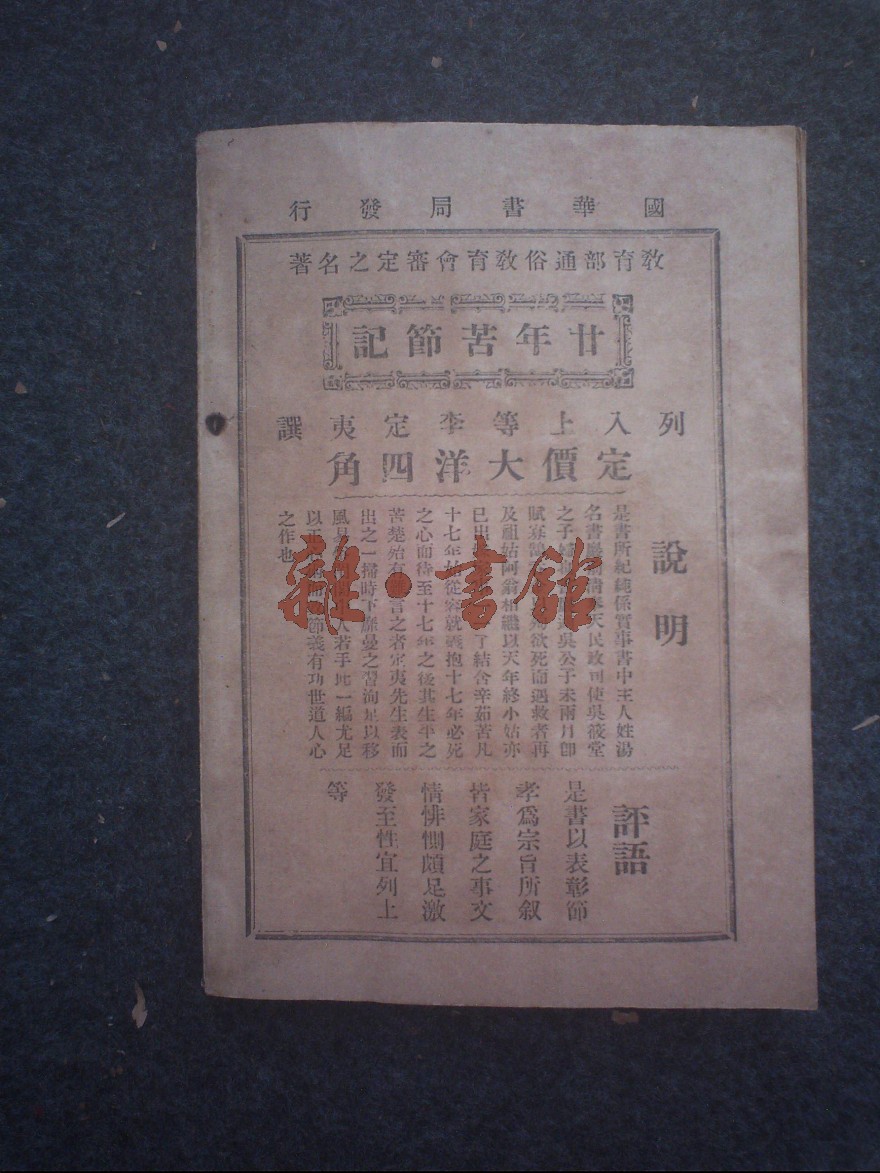 國華書局發行
教育部通俗教育會審定之名著
廿年苦節記
列入上等李定夷譔
定價大洋四角
說明
是書所紀純係實事書中主人姓湯
名書 清奉天民政司使吳筱堂
之子 吳公子未兩月即
賦寡 欲死而遇救者再
及祖姑阿翁相繼以天年終小姑亦
已出 了結含辛茹苦凡
十七年始從容就義抱十七年必死
之心而待至十七年之後其生平之
苦楚殆有 言之者定夷先生表而
出之一掃時下靡曼之習洵足以移
風易 人若手此一編尤足
以 節義有功世道人心
之作也
評語
是書以表彰節
孝爲宗旨所叙
皆家庭之事文
情悱惻頗足激
發至性宜列上
等
雜·書館